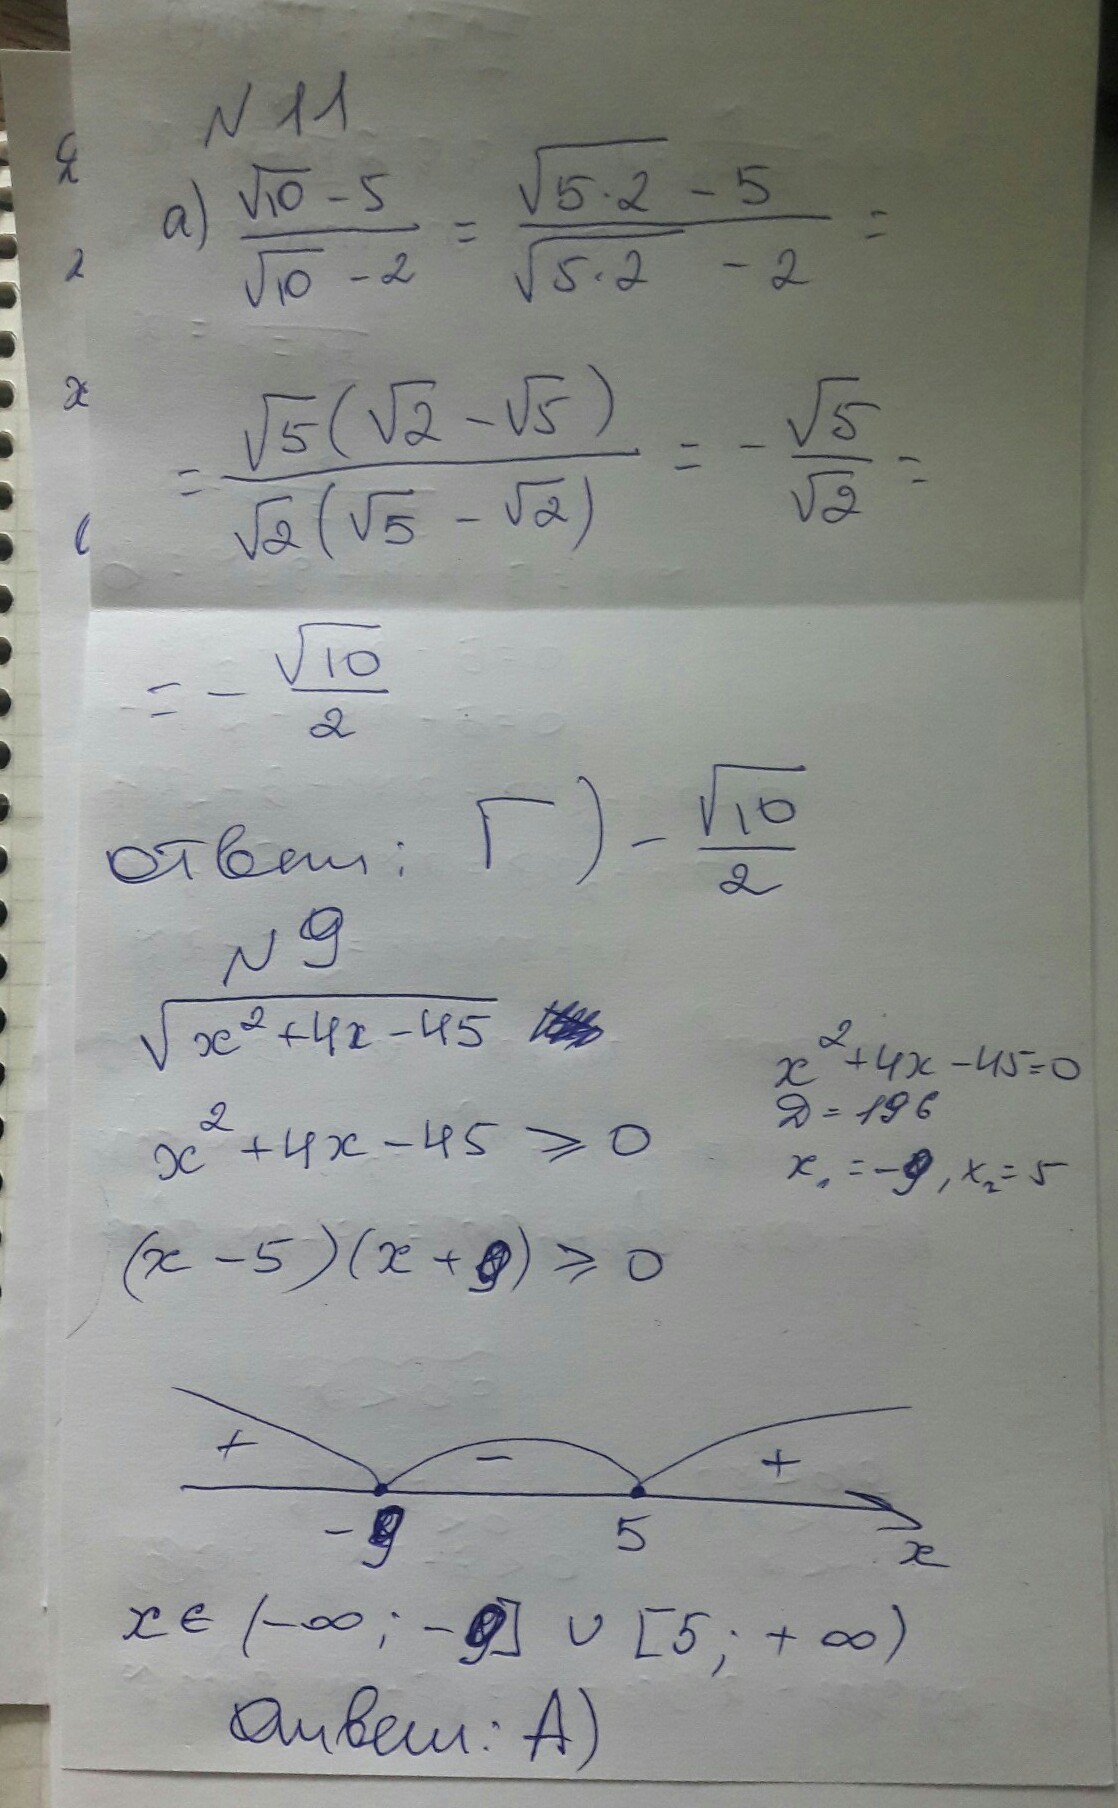 N 11
а) (√10 - 5)/(√10 - 2) = (√(5·2) - 5)/(√(5·2) - 2) =
= (√5(√2 - √5))/(√2(√5 - √2)) = - √5/√2 =
= - √10/2
ответ: Г) - √10/2
N 9
√(x² + 4x - 45)
x² + 4x - 45 ≥ 0
x² + 4x - 45 = 0
D = 196
x₁ = -9, x₂ = 5
(x - 5)(x + 9) ≥ 0
+ - +
-9 5 x
x ∈ (-∞; -9] ∪ [5; +∞)
Ответ: А)